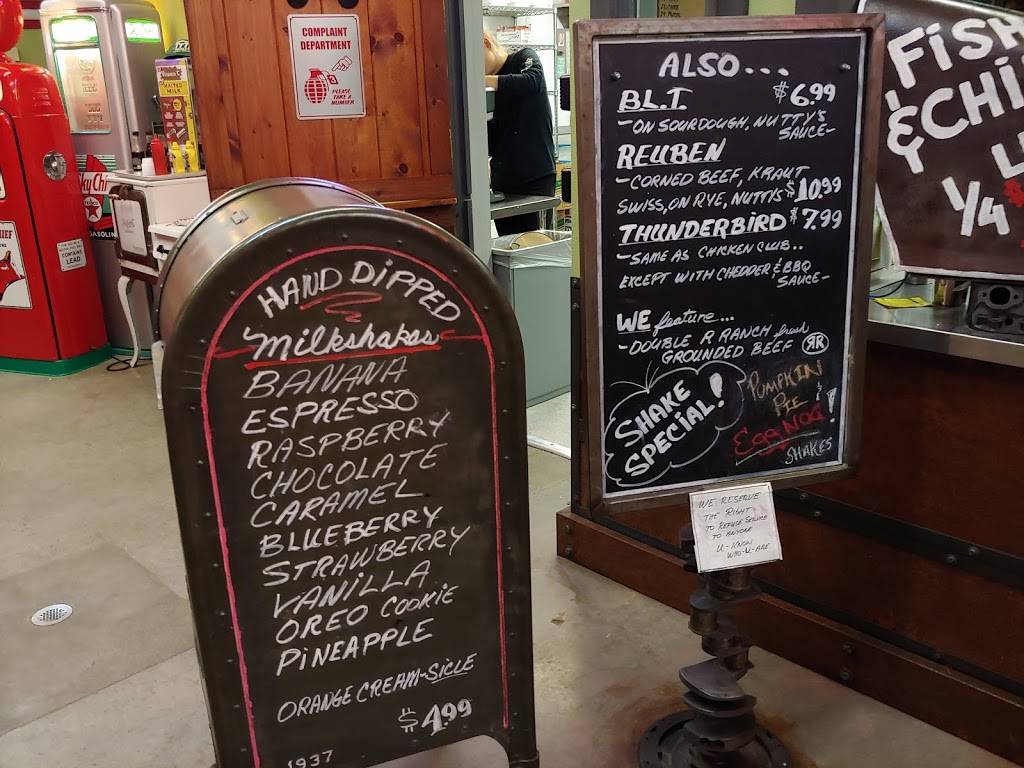 COMPLAINT
DEPARTMENT
PLEASE
TAKE A
NUMBER
HAND DIPPED
Milkshakes
BANANA
ESPRESSO
RASPBERRY
CHOCOLATE
CARAMEL
BLUEBERRY
STRAWBERRY
VANILLA
OREO COOKIE
PINEAPPLE
ORANGE CREAM-SICLE
$4.99
1937
ALSO...
B.L.T. $6.99
-ON SOURDOUGH, NUTTY'S
SAUCE-
REUBEN
-CORNED BEEF, KRAUT
SWISS, ON RYE, NUTTI'S $10.99
THUNDERBIRD $7.99
-SAME AS CHICKEN CLUB..
EXCEPT WITH CHEDDER & BBQ
SAUCE-
WE feature...
-DOUBLE R RANCH fresh
GROUNDED BEEF RR
SHAKE
SPECIAL!
PUMPKIN
PIE &
EGG NOG!
SHAKES
WE RESERVE
THE RIGHT
TO REFUSE SERVICE
TO ANYONE
U-KNOW
WHO-U-ARE
FISH
&CHI
1/4
GASOLIN
CONTAINS
LEAD
MALTED
MILK